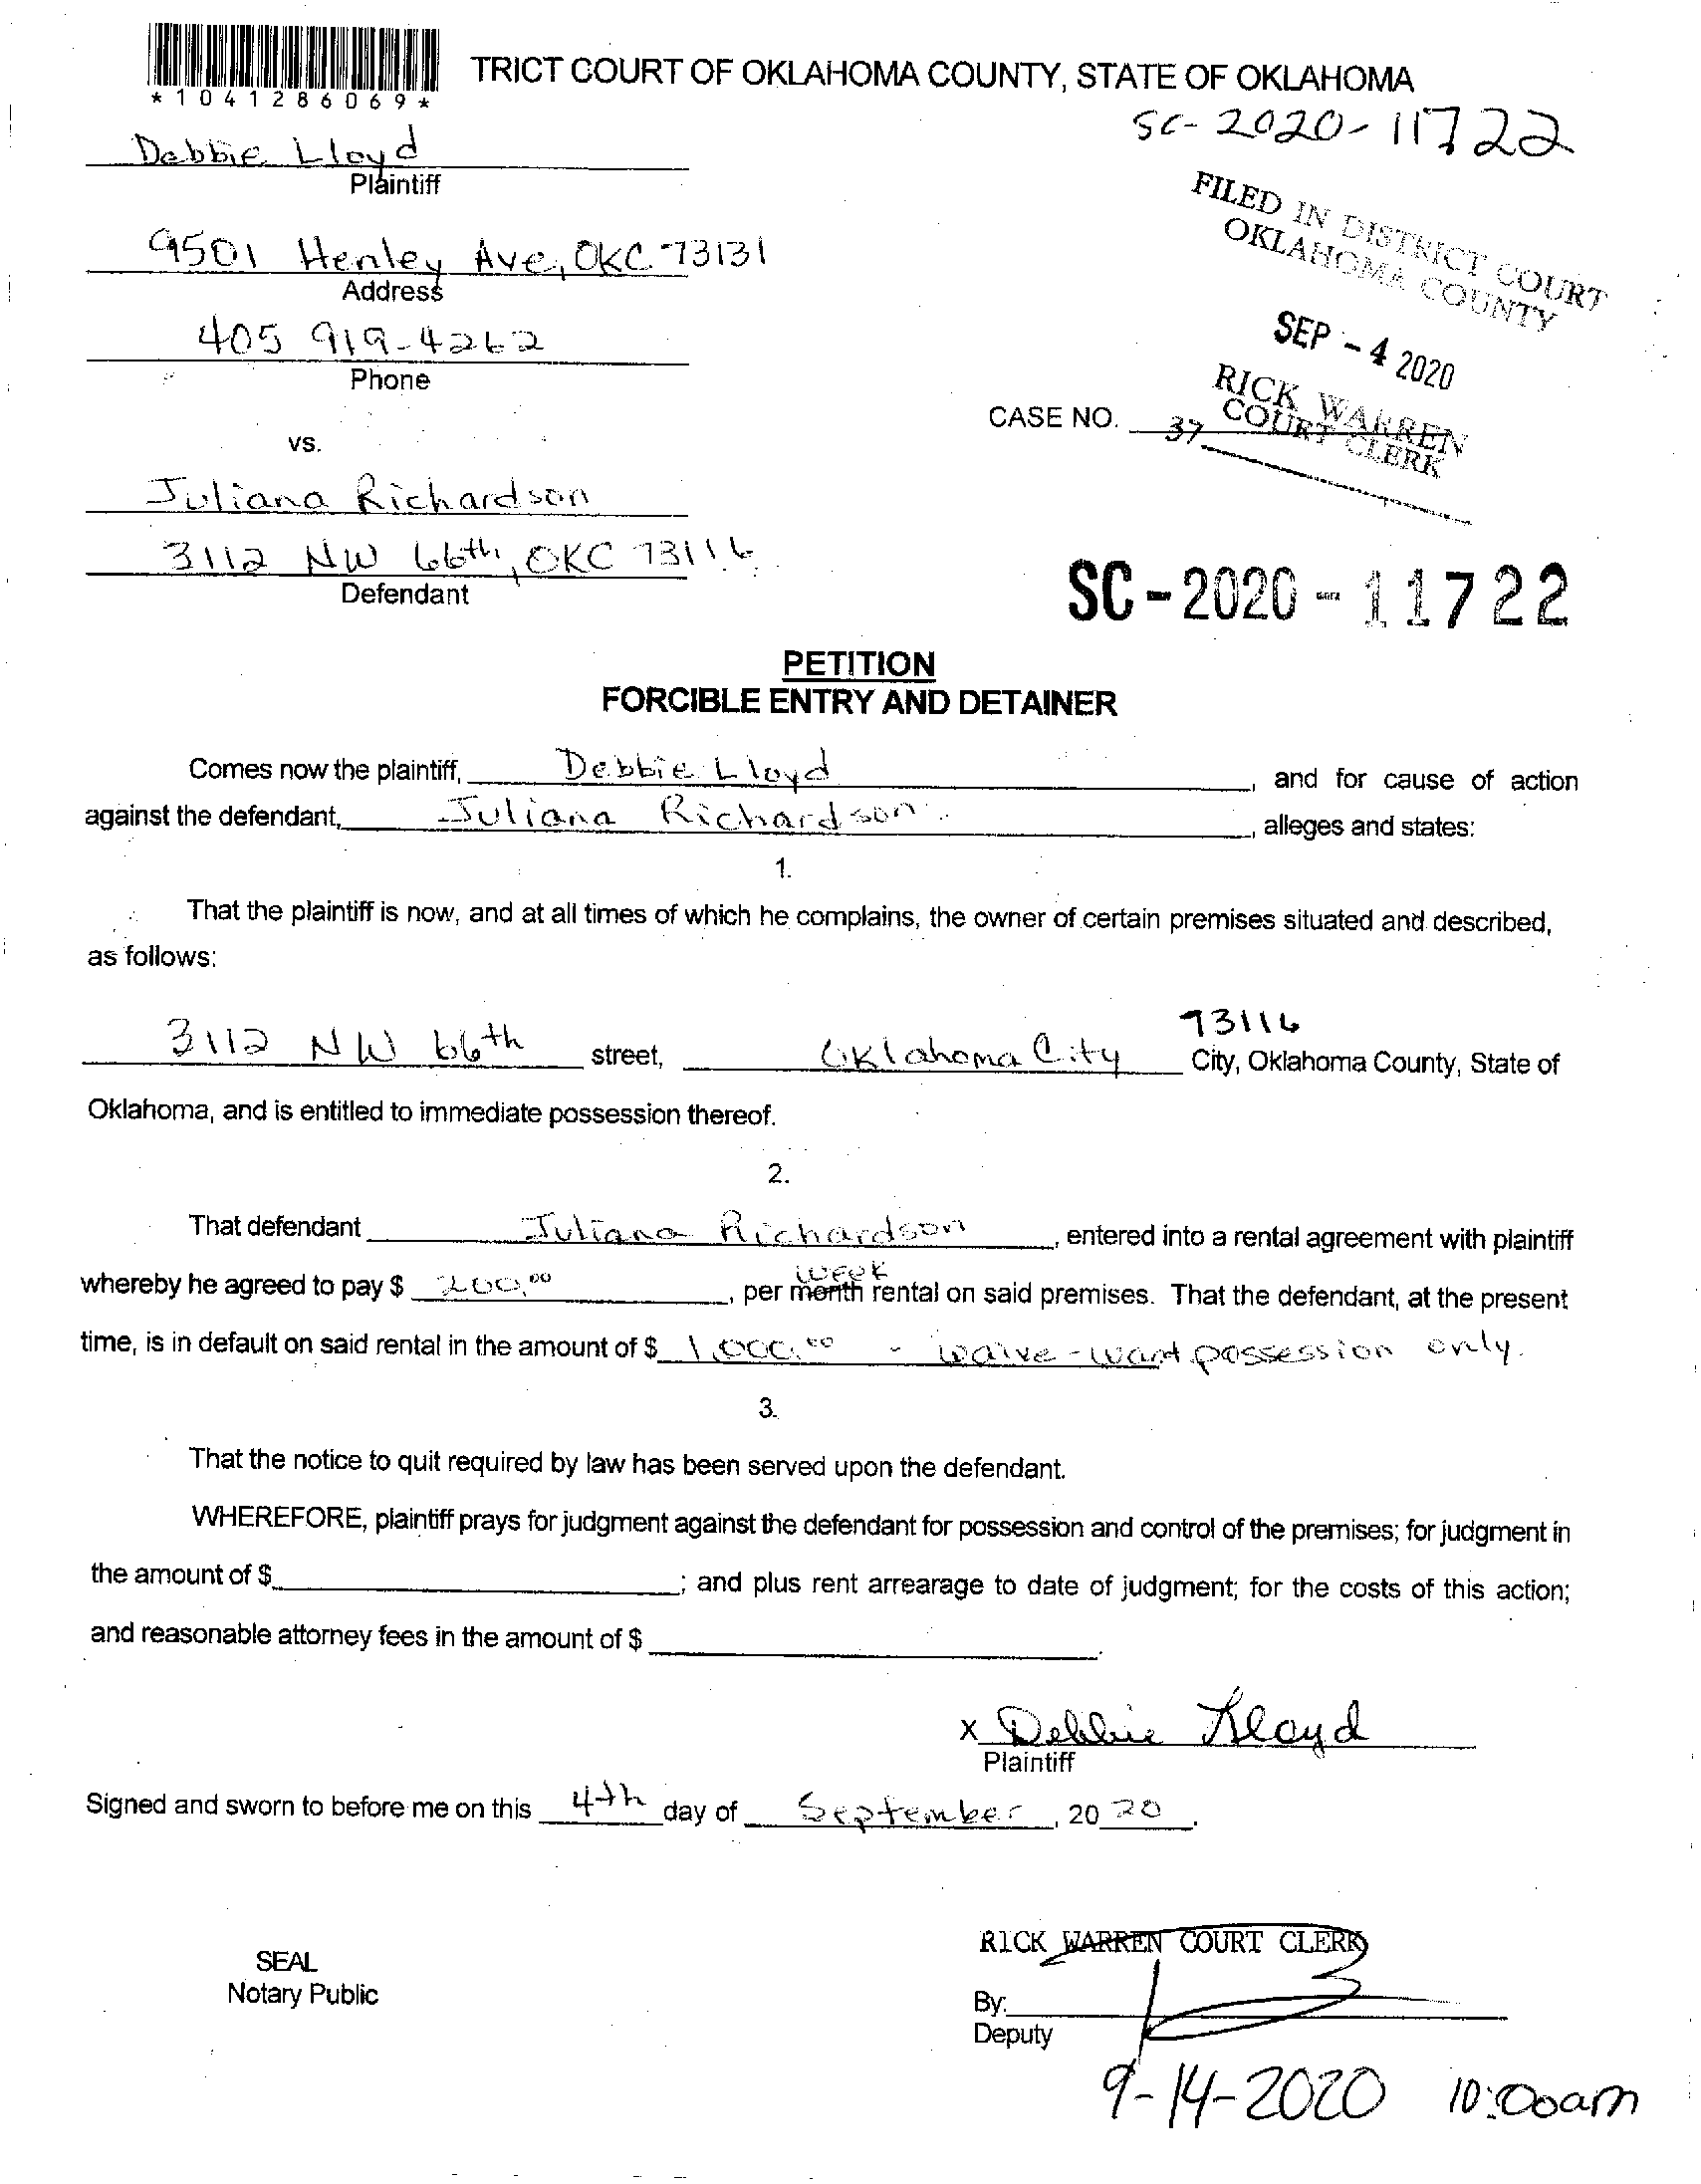 *1041286069*
TRICT COURT OF OKLAHOMA COUNTY, STATE OF OKLAHOMA
SC-2020-11722
Debbie Lloyd
Plaintiff
FILED IN DISTRICT COURT
OKLAHOMA COUNTY
9501 Henley Ave, OKC 73131
Address
SEP - 4 2020
405 919-4262
Phone
RICK WARREN
COURT CLERK
CASE NO.
37
vs.
Juliana Richardson
3112 NW 66th, OKC 73116
Defendant
SC-2020-11722
PETITION
FORCIBLE ENTRY AND DETAINER
Comes now the plaintiff, Debbie Lloyd, and for cause of action
against the defendant, Juliana Richardson, alleges and states:
1.
That the plaintiff is now, and at all times of which he complains, the owner of certain premises situated and described,
as follows:
73116
3112 NW 66th street, Oklahoma City City, Oklahoma County, State of
Oklahoma, and is entitled to immediate possession thereof.
2.
That defendant Juliana Richardson, entered into a rental agreement with plaintiff
week
whereby he agreed to pay $ 200.00, per month rental on said premises. That the defendant, at the present
time, is in default on said rental in the amount of $ 1,000.00 - waive - want possession only.
3.
That the notice to quit required by law has been served upon the defendant.
WHEREFORE, plaintiff prays for judgment against the defendant for possession and control of the premises; for judgment in
the amount of $; and plus rent arrearage to date of judgment; for the costs of this action;
and reasonable attorney fees in the amount of $.
x Debbie Lloyd
Plaintiff
Signed and sworn to before me on this 4th day of September, 2020.
RICK WARREN COURT CLERK
SEAL
Notary Public
By:
Deputy
9-14-2020 10:00am